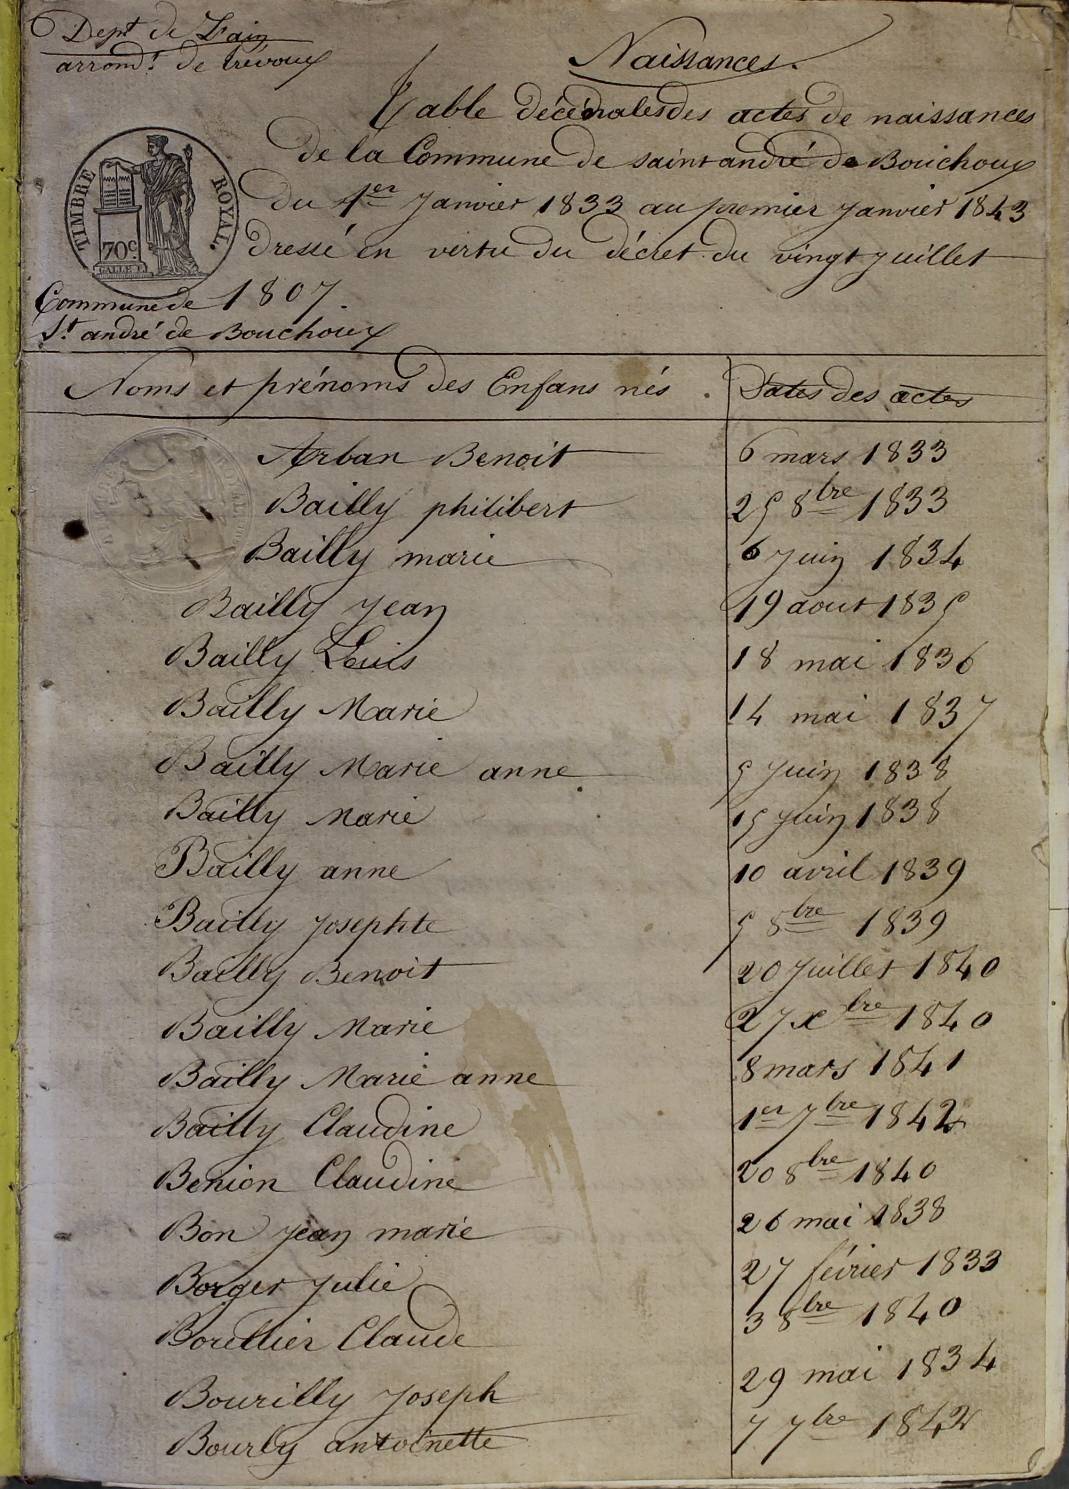 Dept de L'ain
arrondt de trévoux
Naissances.
Table décénales des actes de naissances
de la Commune de saint andré de Bouchoux
du 1er Janvier 1833 au premier Janvier 1843
dressé en vertu du décret du vingt juillet
1807.
TIMBRE ROYAL.
70c
Commune de
St andré de Bouchoux
Noms et prénoms des Enfans nés. Dates des actes
Arban Benoit 6 mars 1833
Bailly philibert 25 8bre 1833
Bailly marie 6 Juin 1834
Bailly Jean 19 aout 1835
Bailly Louis 18 mai 1836
Bailly Marie 14 mai 1837
Bailly Marie anne 5 Juin 1838
Bailly Marie 15 juin 1838
Bailly anne 10 avril 1839
Bailly Josephte 5 8bre 1839
Bailly Benoit 20 Juillet 1840
Bailly Marie 27 xbre 1840
Bailly Marie anne 8 mars 1841
Bailly Claudine 1er 7bre 1842
Benion Claudine 20 8bre 1840
Bon Jean marie 26 mai 1838
Borger Julie 27 février 1833
Boullier Claude 3 8bre 1840
Bourilly Joseph 29 mai 1834
Bourly antoinette 7 7bre 1842